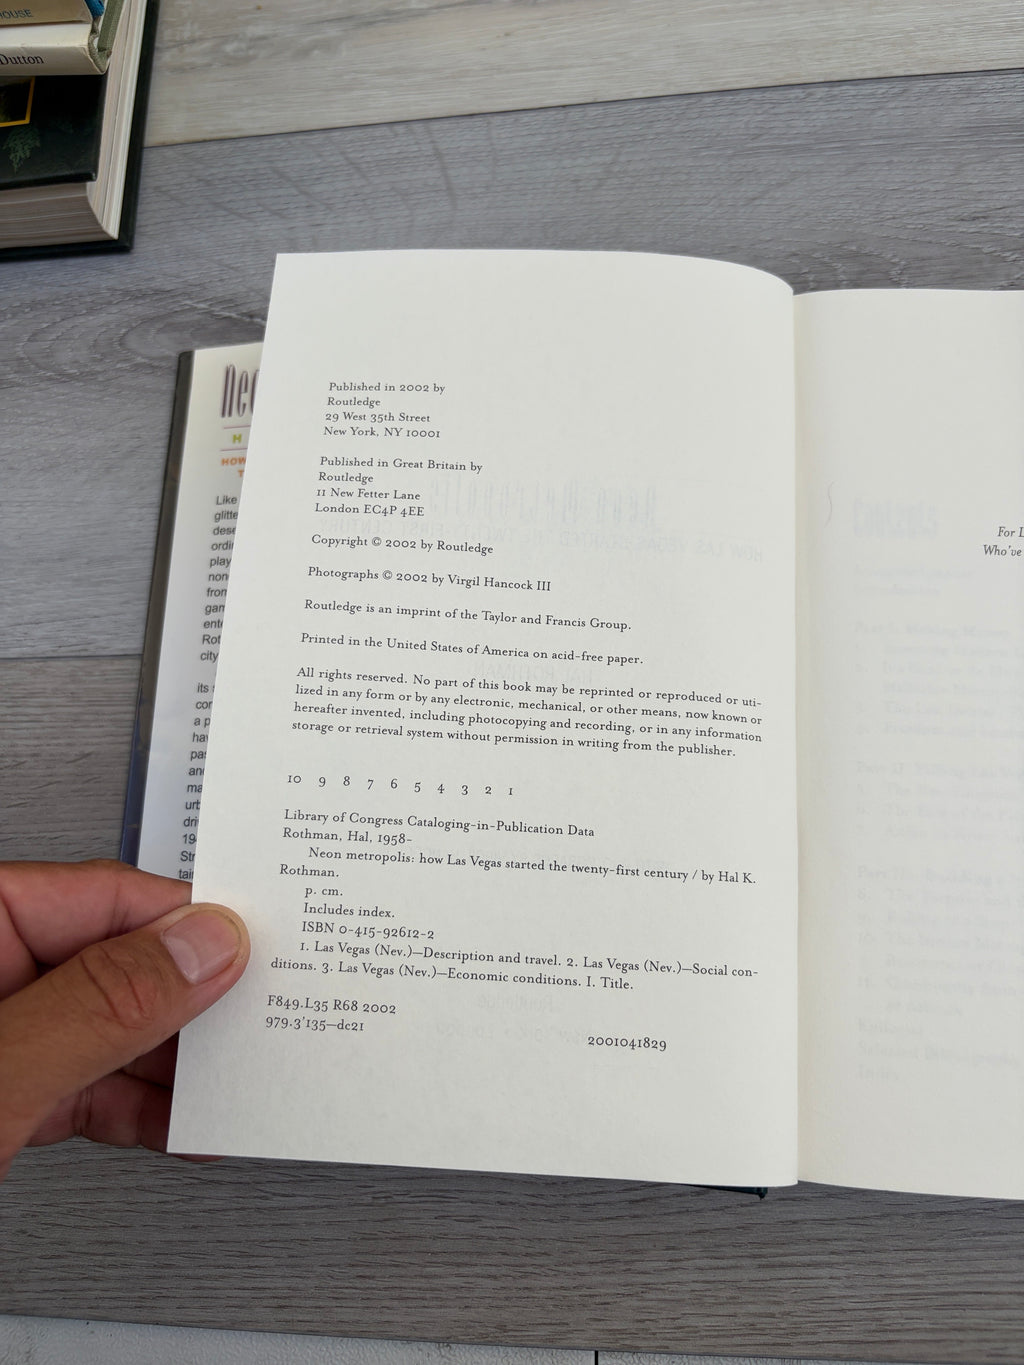 HOUSE
Dutton
Published in 2002 by
Routledge
29 West 35th Street
New York, NY 10001
Published in Great Britain by
Routledge
11 New Fetter Lane
London EC4P 4EE
Copyright © 2002 by Routledge
Photographs © 2002 by Virgil Hancock III
Routledge is an imprint of the Taylor and Francis Group.
Printed in the United States of America on acid-free paper.
All rights reserved. No part of this book may be reprinted or reproduced or uti-
lized in any form or by any electronic, mechanical, or other means, now known or
hereafter invented, including photocopying and recording, or in any information
storage or retrieval system without permission in writing from the publisher.
10 9 8 7 6 5 4 3 2 1
Library of Congress Cataloging-in-Publication Data
Rothman, Hal, 1958-
Neon metropolis: how Las Vegas started the twenty-first century / by Hal K.
Rothman.
p. cm.
Includes index.
ISBN 0-415-92612-2
1. Las Vegas (Nev.)—Description and travel. 2. Las Vegas (Nev.)—Social con-
ditions. 3. Las Vegas (Nev.)—Economic conditions. I. Title.
F849.L35 R68 2002
979.3'135—dc21
2001041829
Like
glitte
dese
ordin
play
non
from
gam
ente
Rot
city
its
con
a p
hav
pas
and
ma
urb
dri
19
Str
tai
For
Who've